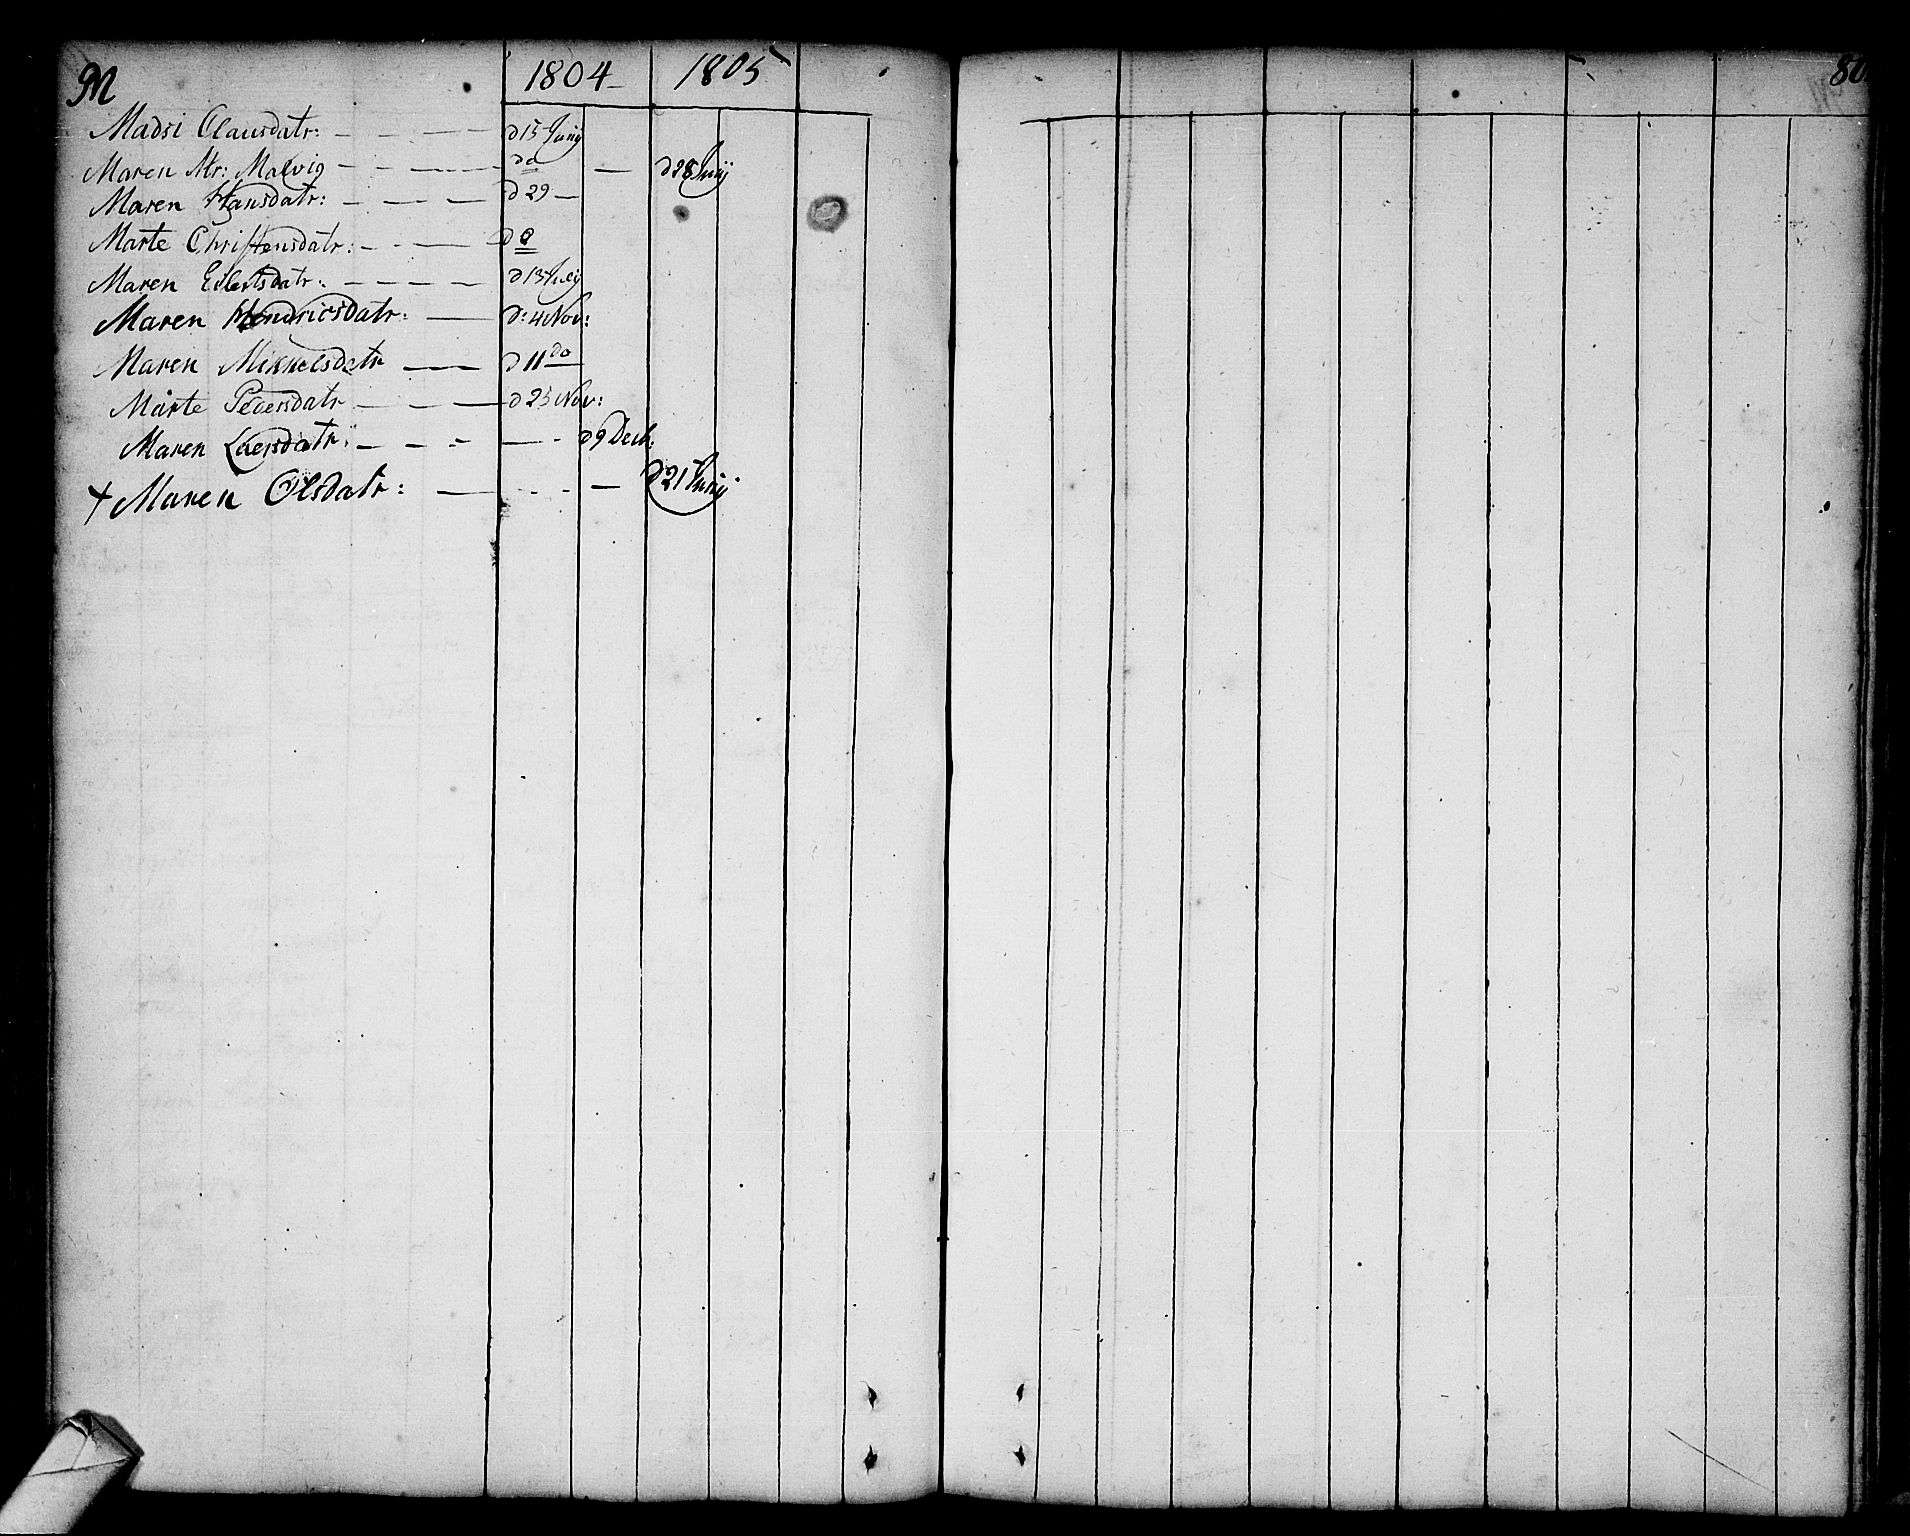 M 1804 1805 80
Madsi Clausdatr: d 15 Junij
Maren Mr: Malvig do d 28 Junij
Maren Hansdatr: d 29
Marte Christensdatr: do
Maren Eilertsdatr: d 13 Julij
Maren Hendricsdatr: d: 4 Nov:
Maren Mikkelsdatr d 11 do
Marte Pedersdatr d 25 Nov:
Maren Laersdatr: d 9 Decb:
+ Maren Olsdatr: d 21 Junij